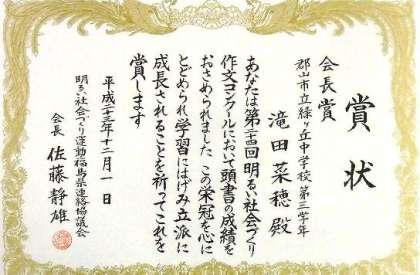 賞状
会長賞
郡山市立緑ヶ丘中学校 第三学年
滝田菜穂殿
あなたは第二十四回明るい社会づくり
作文コンクールにおいて頭書の成績を
おさめられました この栄冠を心に
とどめられ 学習にはげみ立派に
成長されることを祈ってこれを
賞します
平成二十三年十二月一日
明るい社会づくり運動福島県連絡協議会
会長 佐藤静雄